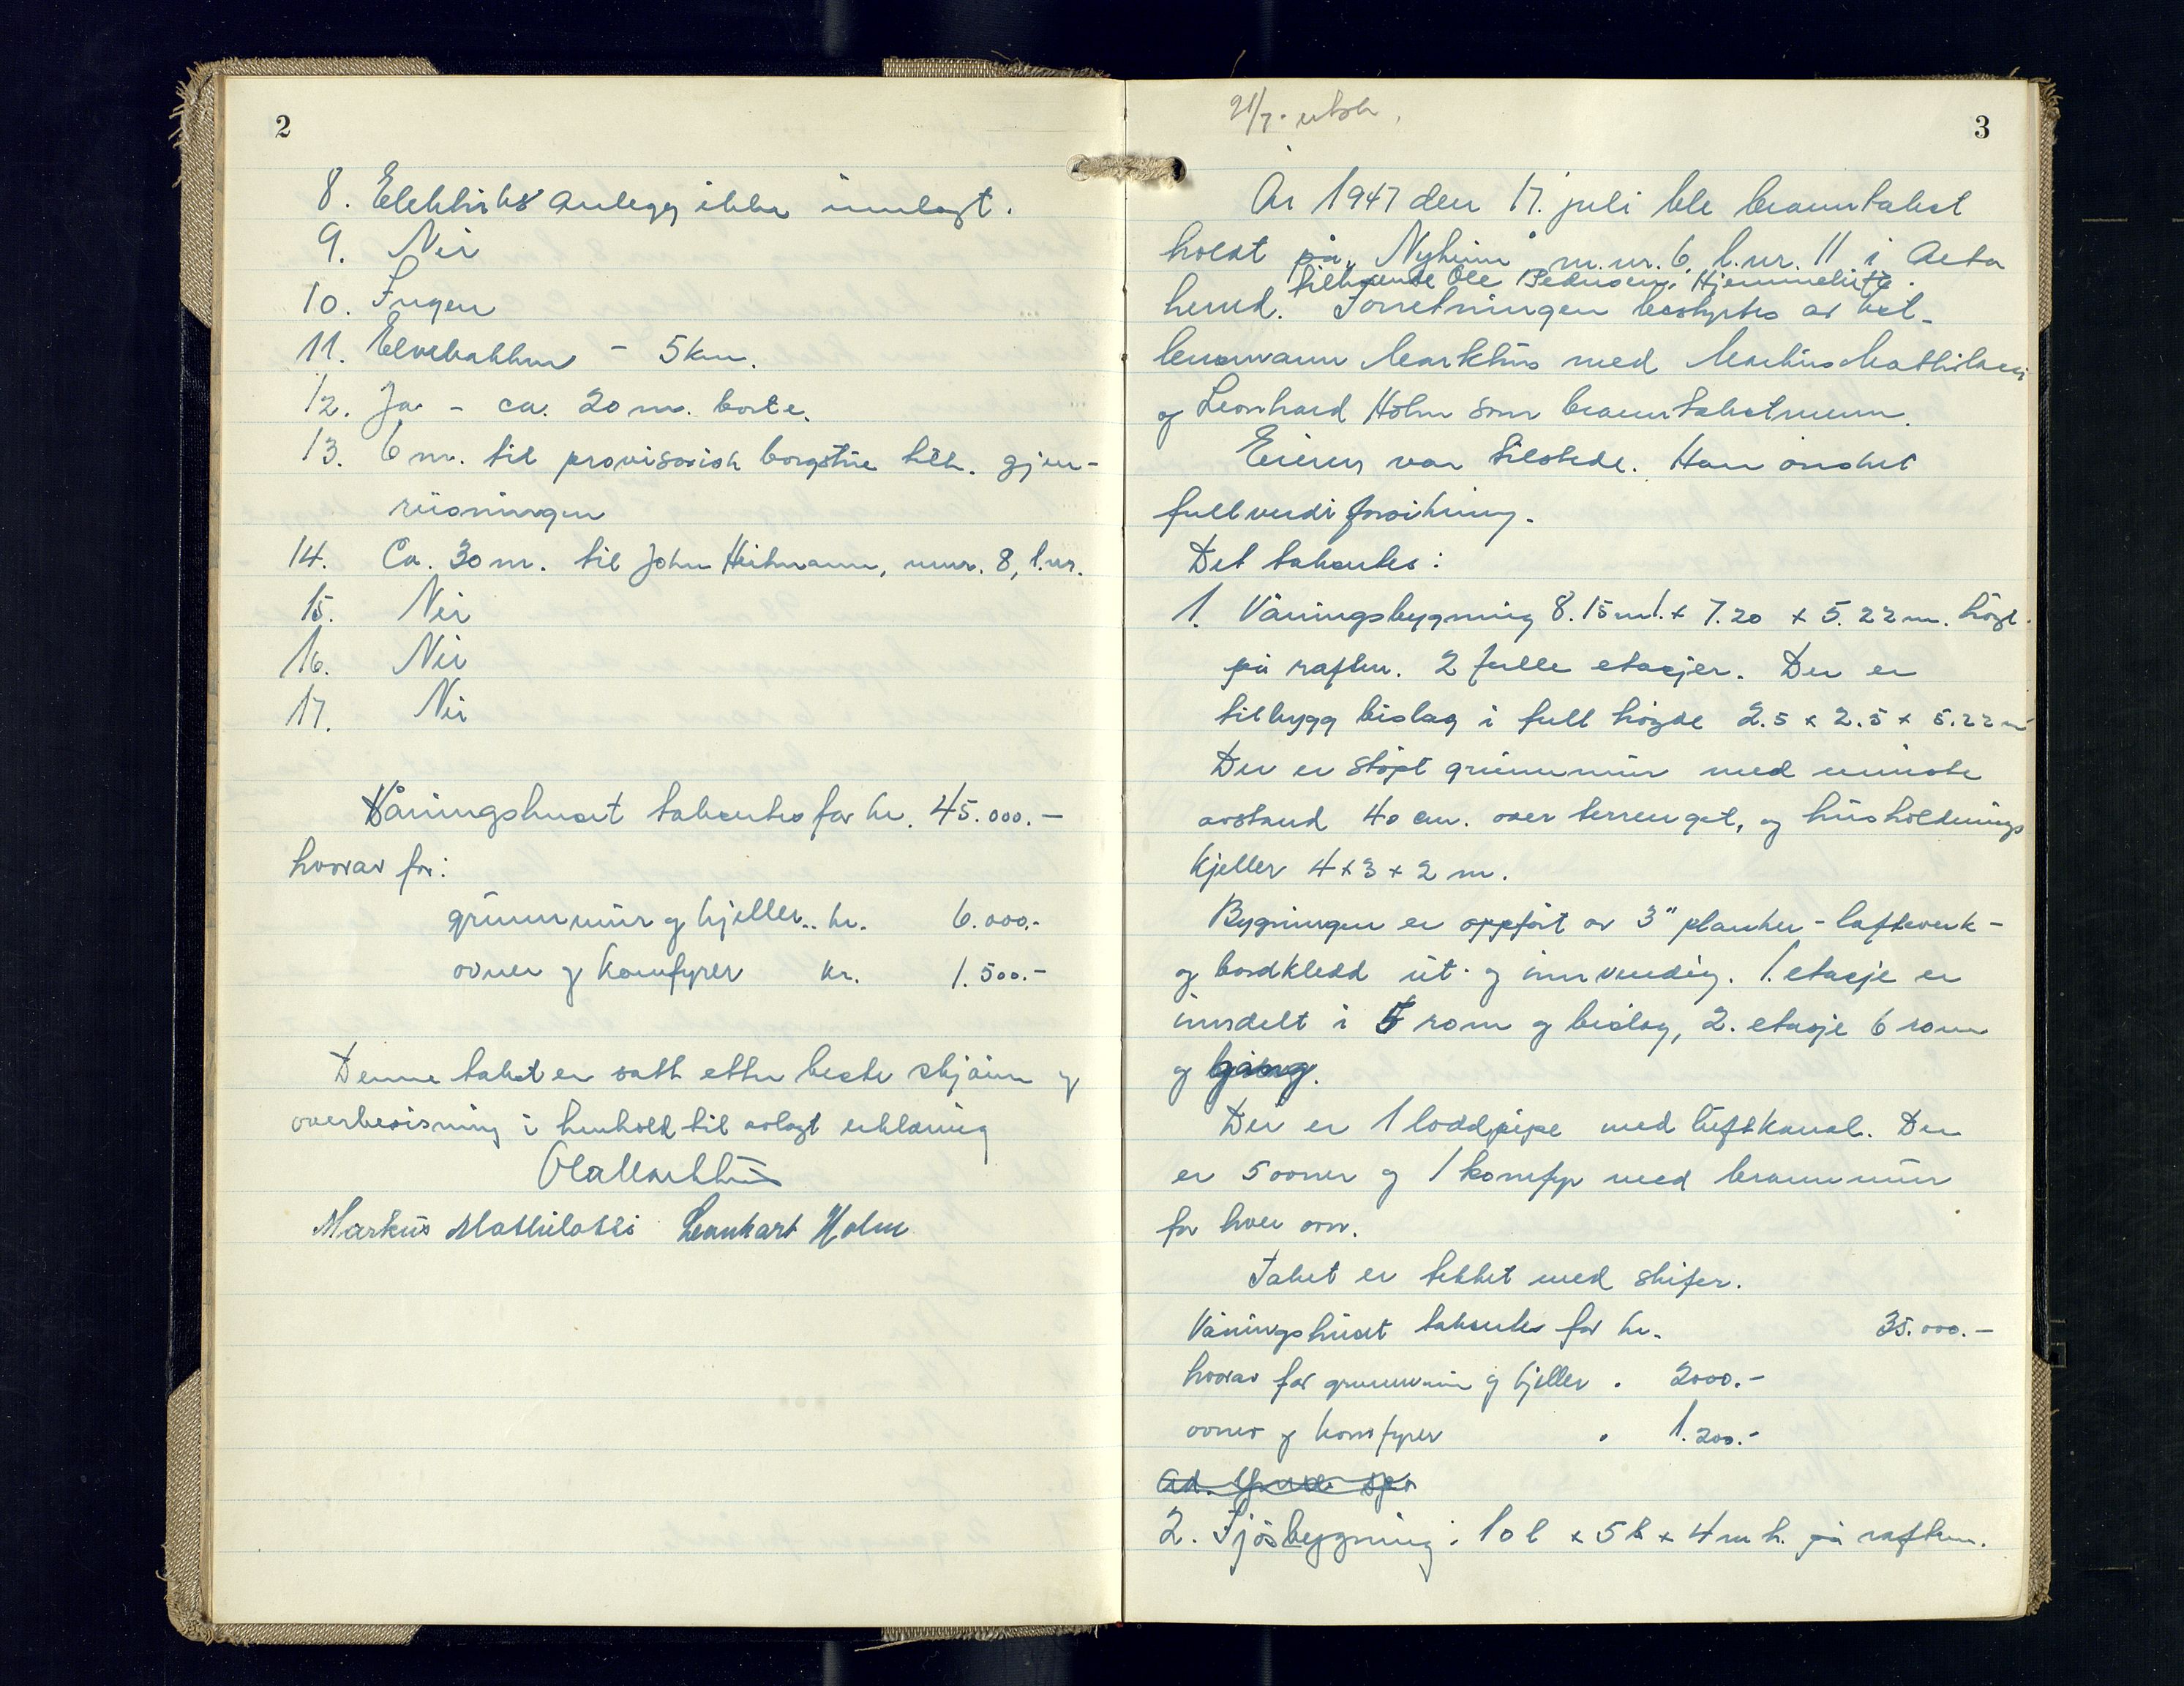 2
8. Elektrisk anlegg ikke innlagt.
9. Nei
10. Ingen
11. Elvebakken - 5 km.
12. Ja - ca. 20 m. borte.
13. 6 m. til provisorisk borgstue tilh. gjen-
reisningen
14. Ca. 30 m. til John Heitmann, mnr. 8, l.nr.
15. Nei
16. Nei
17. Nei
Våningshuset takseres for kr. 45.000.-
hvorav for:
grunnmur og kjeller.. kr. 6.000.-
ovner og komfyrer kr. 1.500.-
Denne takst er satt etter beste skjønn og
overbevisning i henhold til avlagt erklæring
Ola Markhus
Markus Mathilassi Leonhart Holm
21/7. utskr.
3
År 1947 den 17. juli ble branntakst
holdt på "Nyheim" m.nr. 6, l.nr. 11 i Alta
tilhørende Ole Pedersen, Hjemmeluft.
herred. Forretningen bestyrtes av
lensmann Markhus med Markus Mathilassi
og Leonhard Holm som branntakstmenn.
Eieren var tilstede. Han ønsket
fullverdi forsikring.
Det takseres:
1. Våningsbygning 8.15 m l. x 7.20 x 5.22 m. høgt.
på raften. 2 fulle etasjer. Der er
tilbygg bislag i full høgde 2.5 x 2.5 x 5.22 m
Der er støpt grunnmur med minste
avstand 40 cm. over terrenget, og husholdnings
kjeller 4 x 3 x 2 m.
Bygningen er oppført av 3" planker - lafteverk -
og bordkledd ut- og innvendig. 1. etasje er
inndelt i 5 rom og bislag, 2. etasje 6 rom
og gang.
Der er 1 loddpipe med luftkanal. Der
er 5 ovner og 1 komfyr med brannmur
for hver ovn.
Taket er tekket med skifer.
Våningshuset takseres for kr. 35.000.-
hvorav for grunnmur og kjeller " 2000.-
ovner og komfyrer " 1.200.-
2. Fjøsbygning: 10 l x 5 b x 4 m h. på raften.